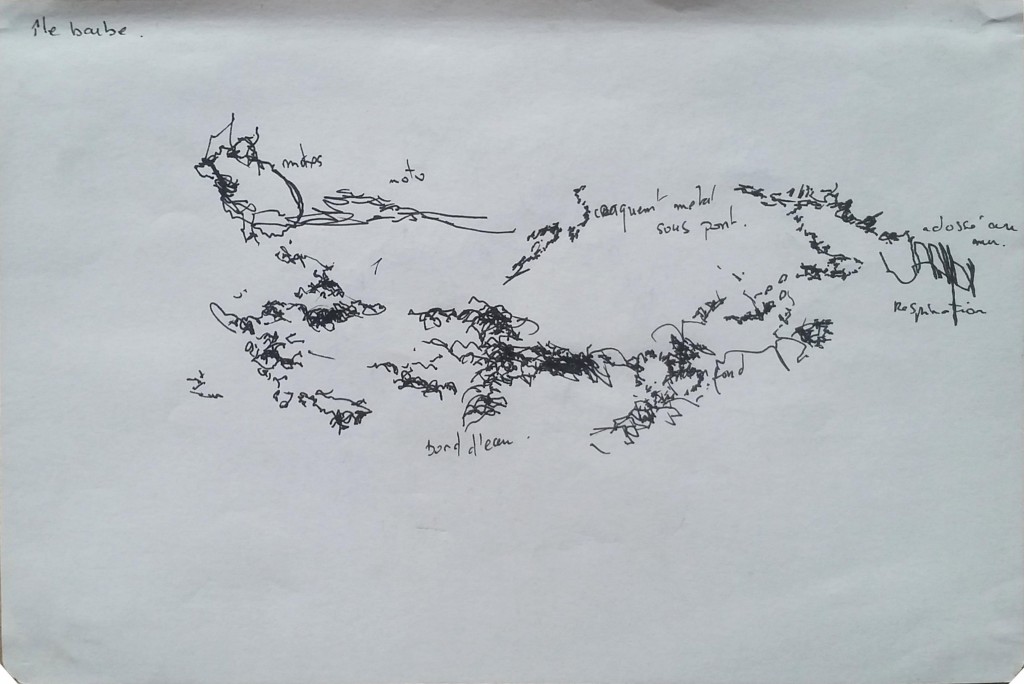 Île barbe.
moto
craquement métal
sous pont.
adossé au
mur.
Respiration
fond
bord d'eau.